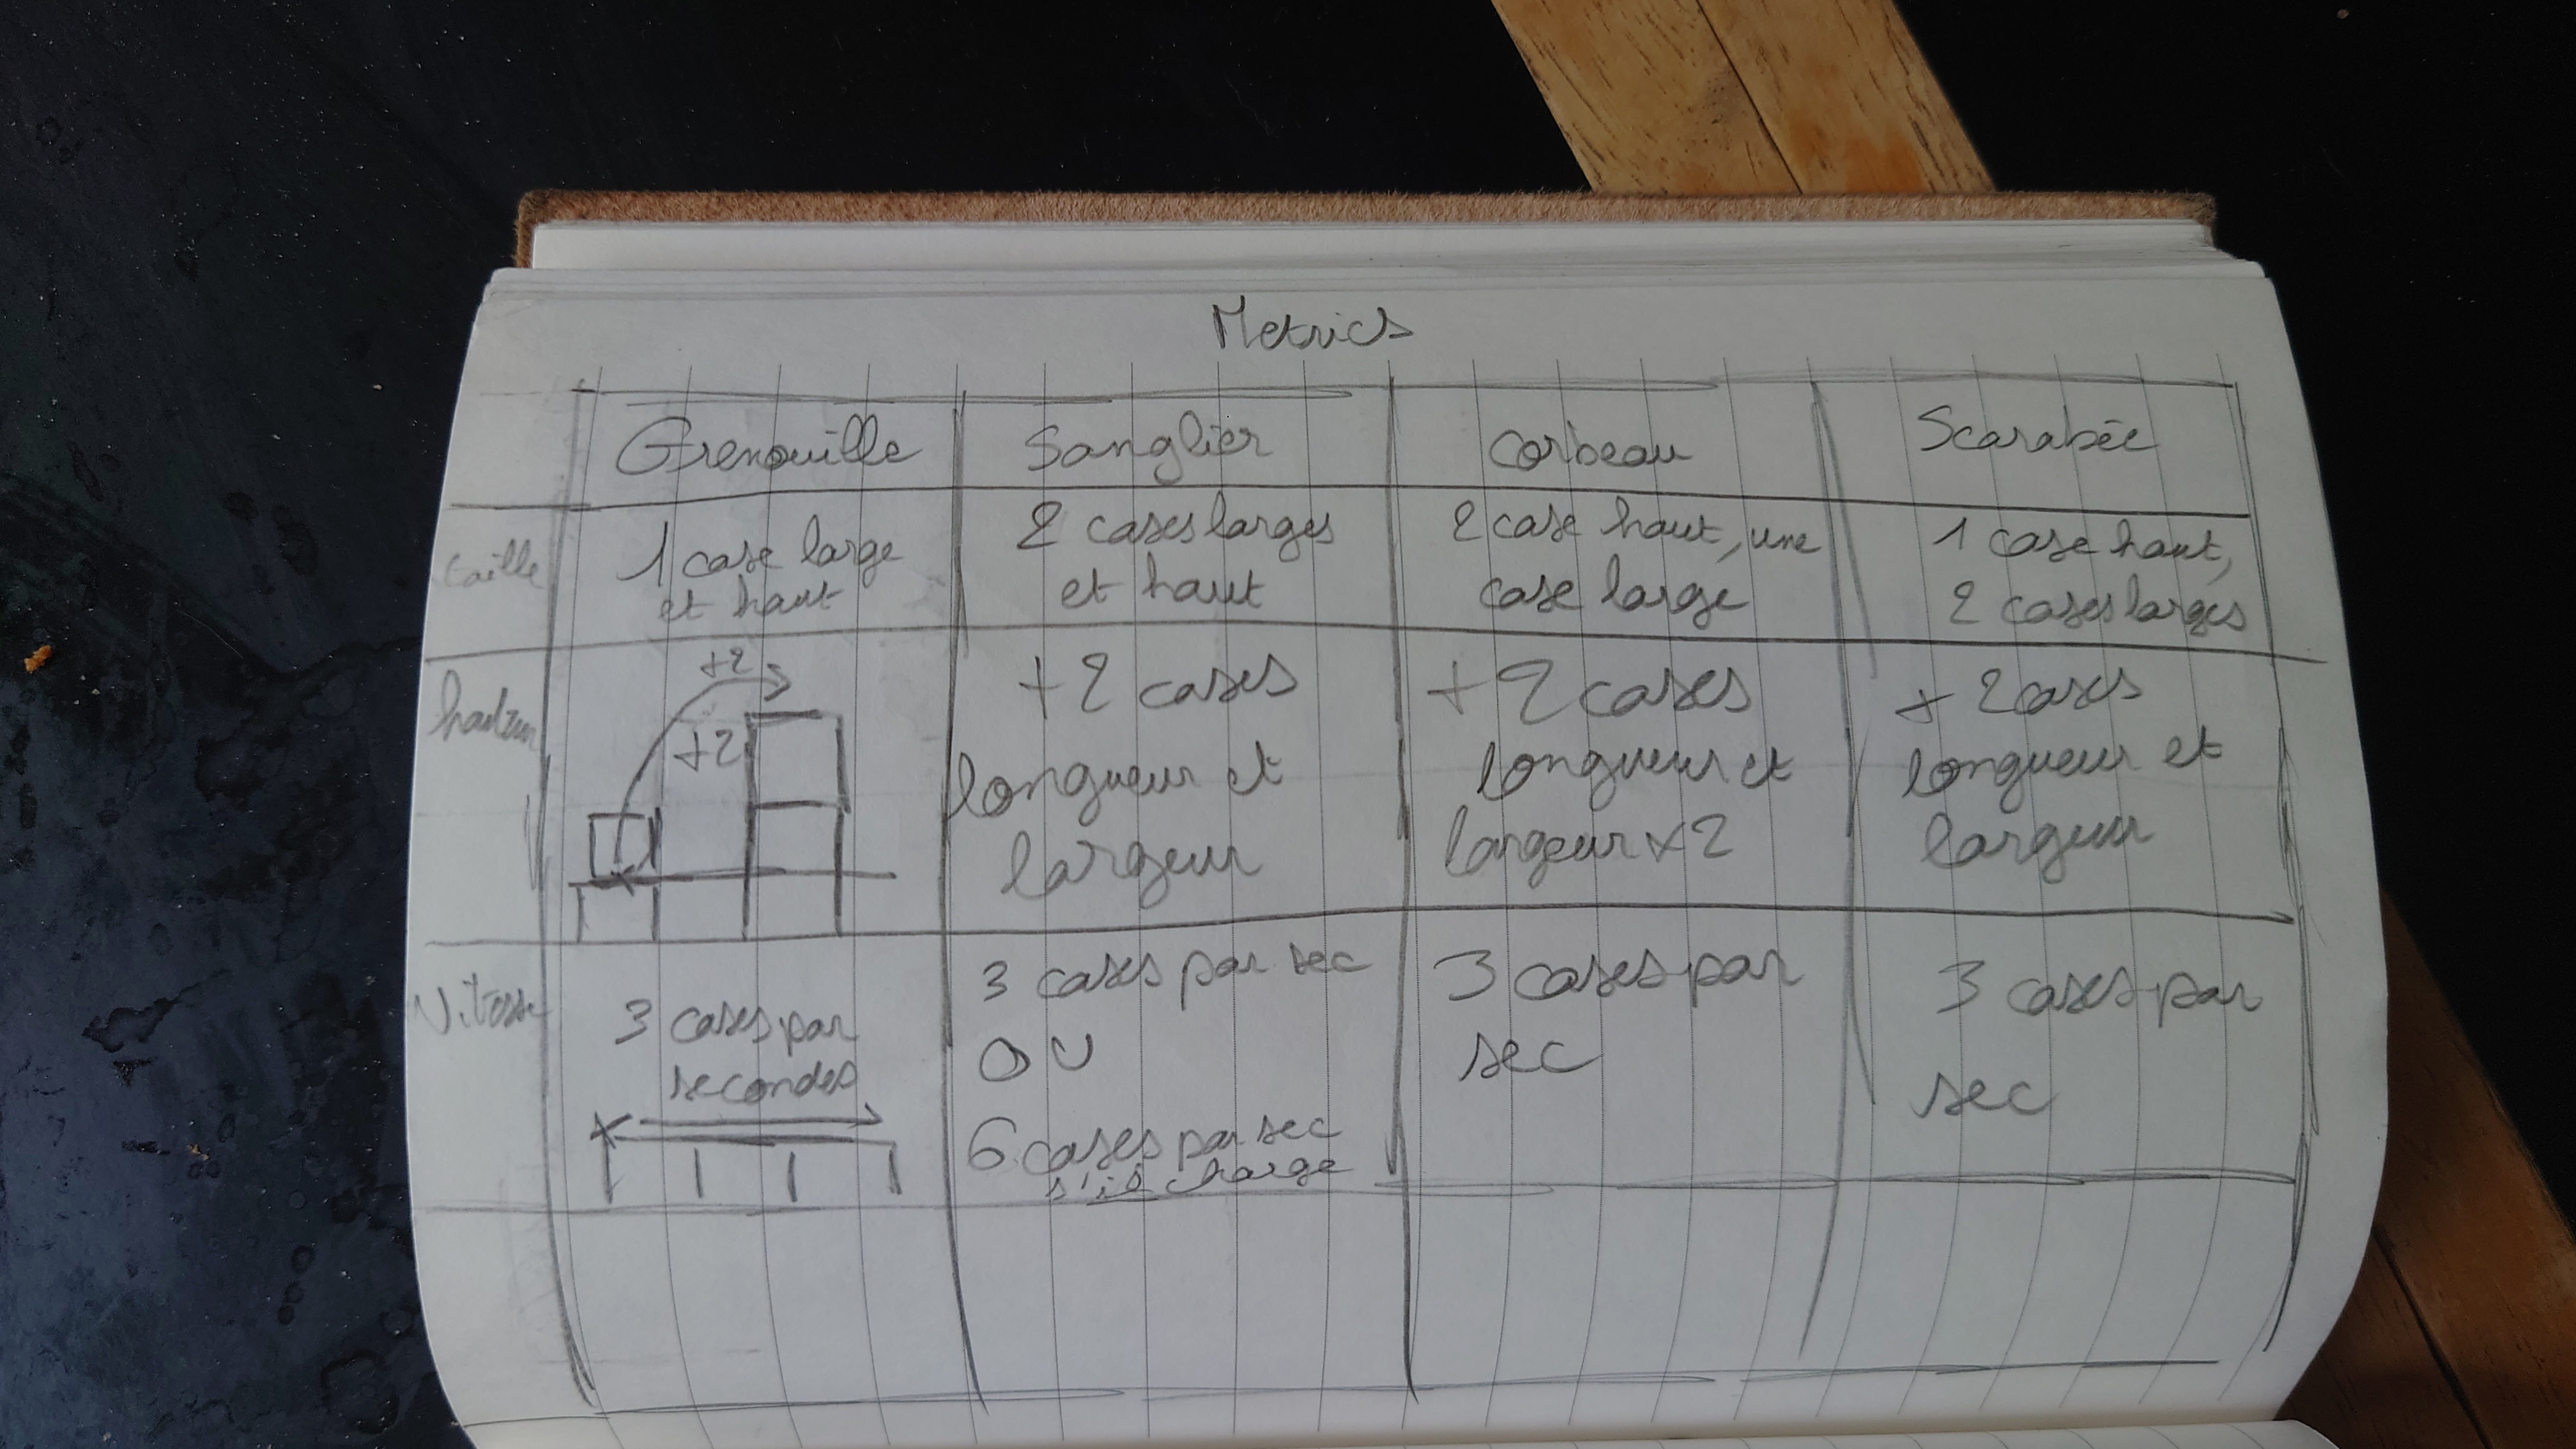 Metrics
Grenouille
Sanglier
corbeau
Scarabée
taille
1 case large
et haut
2 cases larges
et haut
2 case haut, une
case large
1 case haut,
2 cases larges
hauteur
+2
+2
+2 cases
longueur et
largeur
+2 cases
longueur et
largeur x2
+ 2 cases
longueur et
largeur
Vitesse
3 cases par
secondes
3 cases par sec
OU
6 cases par sec
s'il charge
3 cases par
sec
3 cases par
sec